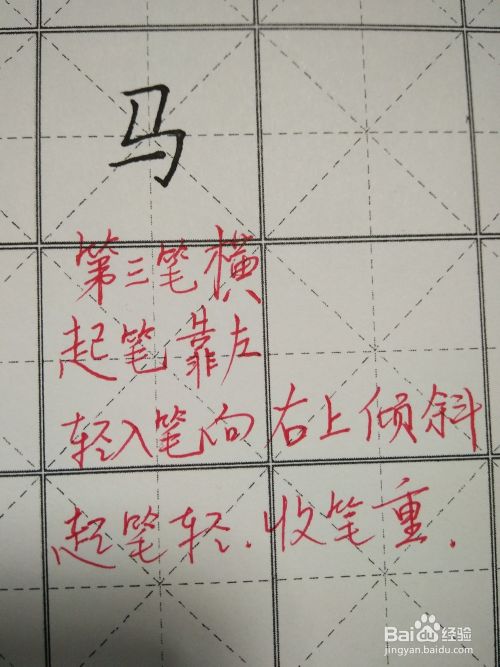 马
第三笔横
起笔靠左
轻入笔向右上倾斜
起笔轻.收笔重.
Baidu经验
jingyan.baidu.com